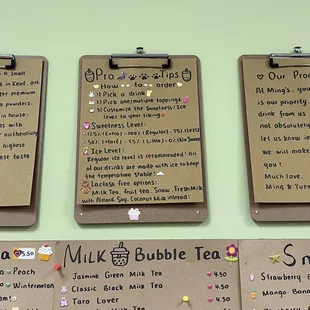 is a Small
in Kent, OR.
premium
powders.
in house
with
authentic
highest
taste
Pro Tips
How to order
1) Pick a drink
2) Pick one/multiple toppings
3) Customize the Sweetness/Ice
level to your liking
Sweetness Level:
(Regular)
(Less)
50% (Half)
25% (Little)
0% (No
Ice Level:
Regular ice level is recommended! All of
our drinks are made with ice to keep
the temperature stable
Lactose-free options:
Milk Tea, Fruit tea, Snow, Fresh Milk
with Almond, Soy, Coconut Milk instead!
Our Pro
At Ming's, you
is our priority
drink from us
not absolutely
let us know
will make
you!
Much love,
Ming & Yue
a 5.50
Peach
Wintermelon
Milk Bubble Tea
Jasmine Green Milk Tea 4.50
Classic Black Milk Tea 4.50
Taro Lover 4.50
Sn
Strawberry
Mango Bana